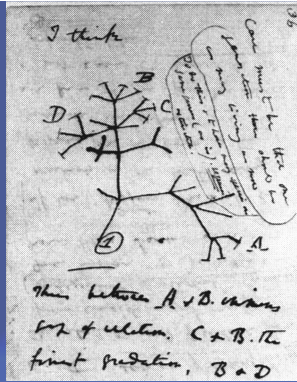 I think
B
D
C
Case must be that one
generation then should be
as many living as now
To do this & to have many species in
same genus (as is) requires
extinction
1
A
Thus between A & B. immens
gap of relation. C & B. the
finest gradation, B & D
36